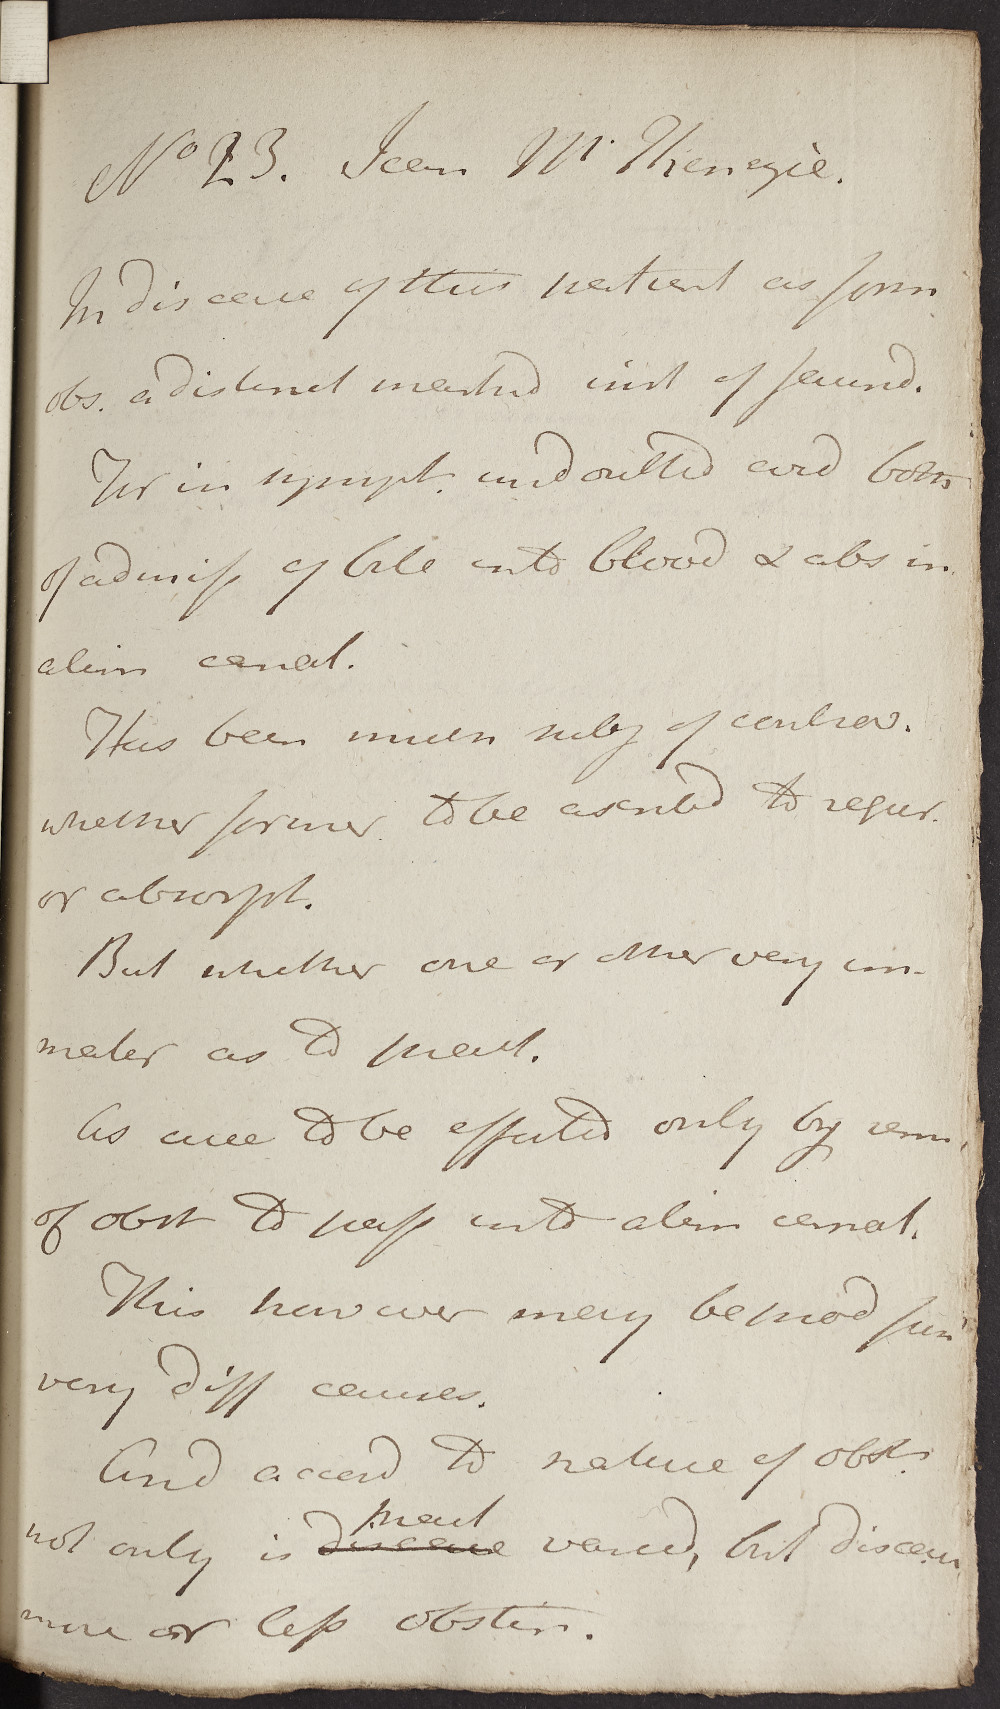 No 23. Jean McKenzie.
In disease of this patient as form
obs. a distinct marked inst of jaund.
For in sympt. undoubted evid both
of admiss of bile into blood & abs in
alim canal.
Has been much subj of controv.
whether former to be ascribed to regur.
or absorpt.
But whether one or other very im-
mater as to pract.
As cure to be effected only by rem.
of obst to pass into alim canal.
This however may be prod fm
very diff causes.
And accord to nature of obst.
not only is disease pract varied, but disease
more or less obstin.